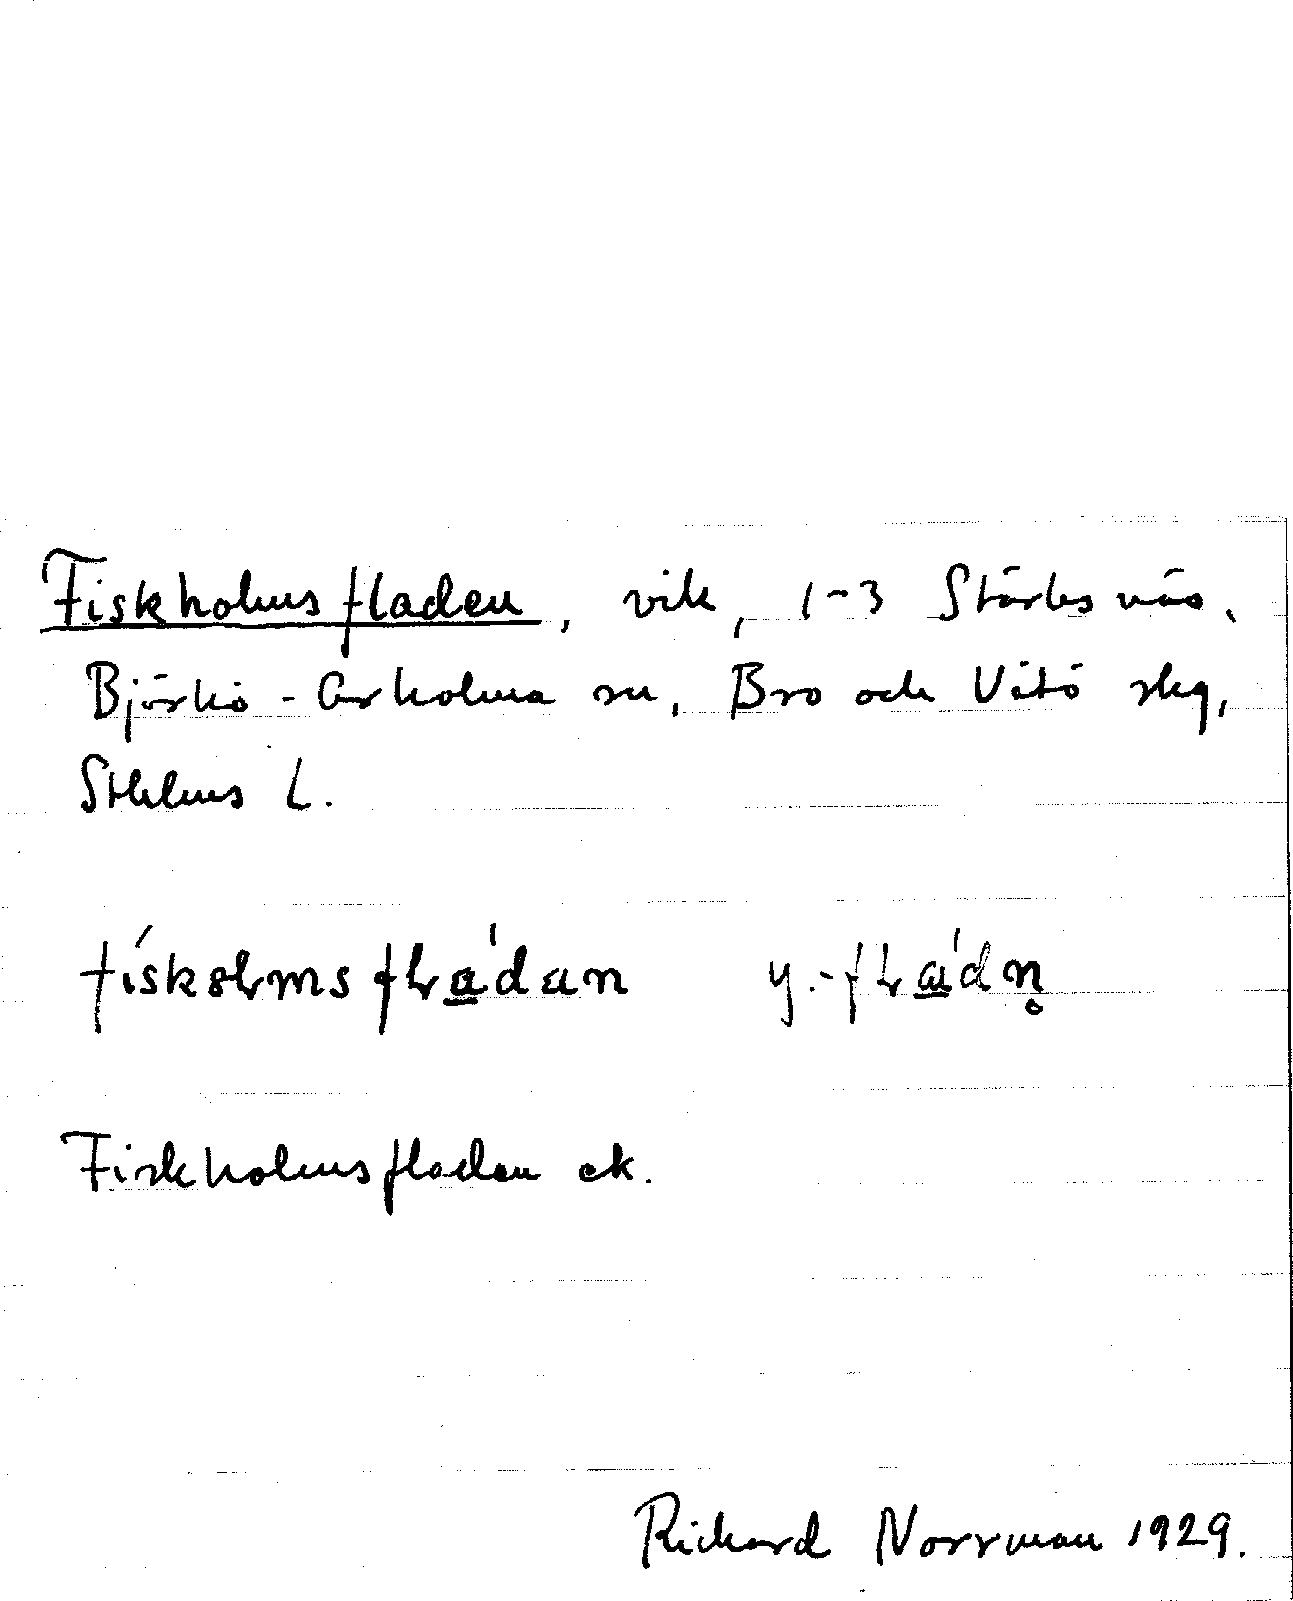 Fiskholmsfladen, vik, 1-3 Stärbsnäs,
Björkö-Arholma sn, Bro och Vätö skg,
Sthlms L.
fískolmsflá̲dan y.-flá̲dn̥
Fiskholmsfladen ek.
Richard Norrman 1929.